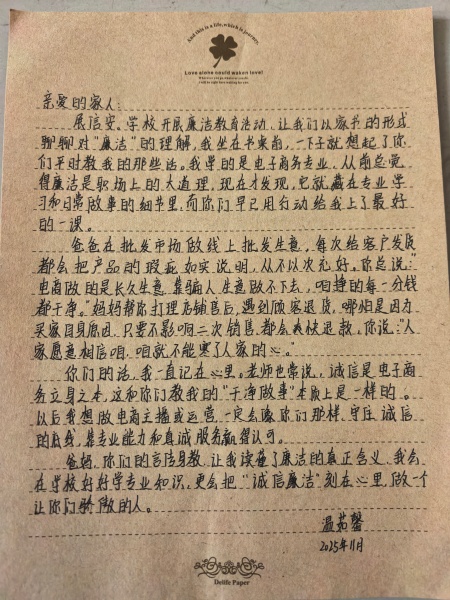 And this is a life, which is journey.
Love alone could waken love!
亲爱的家人:
展信安。学校开展廉洁教育活动,让我们以家书的形式
聊聊对“廉洁”的理解,我坐在书桌前,一下子就想起了你
们平时教我的那些话。我学的是电子商务专业,从前总觉
得廉洁是职场上的大道理,现在才发现,它就藏在专业学
习和日常做事的细节里,而你们早已用行动给我上了最好
的一课。
爸爸在批发市场做线上批发生意,每次给客户发货
都会把产品的瑕疵如实说明,从不以次充好。你总说:“
电商做的是长久生意,靠骗人生意做不下去,咱挣的每一分钱
都干净。”妈妈帮你打理店铺售后,遇到顾客退货,哪怕是因为
买家自身原因,只要不影响二次销售都会爽快退款,你说:“人
家愿意相信咱,咱就不能寒了人家的心。”
你们的话,我一直记在心里。老师也常说,诚信是电子商
务立身之本,这和你们教我的“干净做事”本质上是一样的。
以后我想做电商主播或运营,一定会像你们那样,守住诚信
的底线,靠专业能力和真诚服务赢得认可。
爸妈,你们的言传身教,让我读懂了廉洁的真正含义,我会
在学校好好学专业知识,更会把“诚信廉洁”刻在心里,做一个
让你们骄傲的人。
温茹馨
2025年11月
Delife Paper